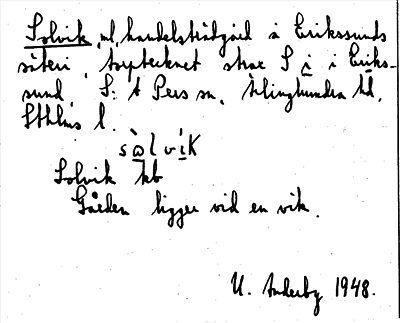 Solvik, nl, handelsträdgård å Erikssunds
säteri, torptecknet strax S i i Eriks-
sund. S:t Pers sn, Ärlinghundra hd,
Sthlms l.
sòlvìk
Solvik kb
Gården ligger vid en vik.
U. Anderby 1948.